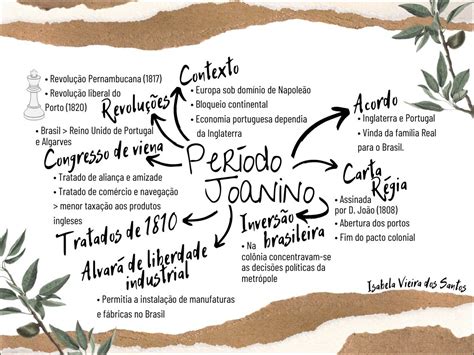 Contexto
• Europa sob domínio de Napoleão
• Bloqueio continental
• Economia portuguesa dependia
da Inglaterra
• Revolução Pernambucana (1817)
• Revolução liberal do
Porto (1820)
Revoluções
• Brasil > Reino Unido de Portugal
e Algarves
Congresso de viena
Período
Joanino
Acordo
• Inglaterra e Portugal
• Vinda da família Real
para o Brasil.
Carta
Régia
• Assinada
por D. João (1808)
• Abertura dos portos
• Fim do pacto colonial
• Tratado de aliança e amizade
• Tratado de comércio e navegação
> menor taxação aos produtos
ingleses
Tratados de 1810
Inversão
brasileira
• Na
colônia concentravam-se
as decisões políticas da
metrópole
Alvará de liberdade
industrial
• Permitia a instalação de manufaturas
e fábricas no Brasil
Isabela Vieira dos Santos